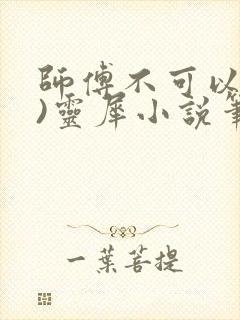 師傅不可以
)靈犀小說筆
一葉菩提